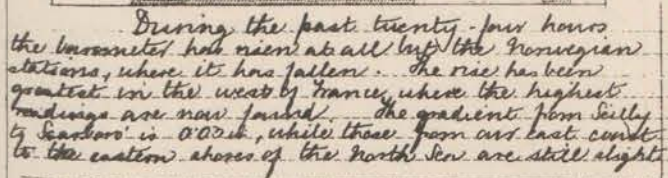 During the past twenty-four hours
the barometer has risen at all but the Norwegian
stations, where it has fallen. The rise has been
greatest in the west of France, where the highest
readings are now found. The gradient from Scilly
to Scarboro' is, while those from our east coast
to the eastern shores of the North Sea are still slight